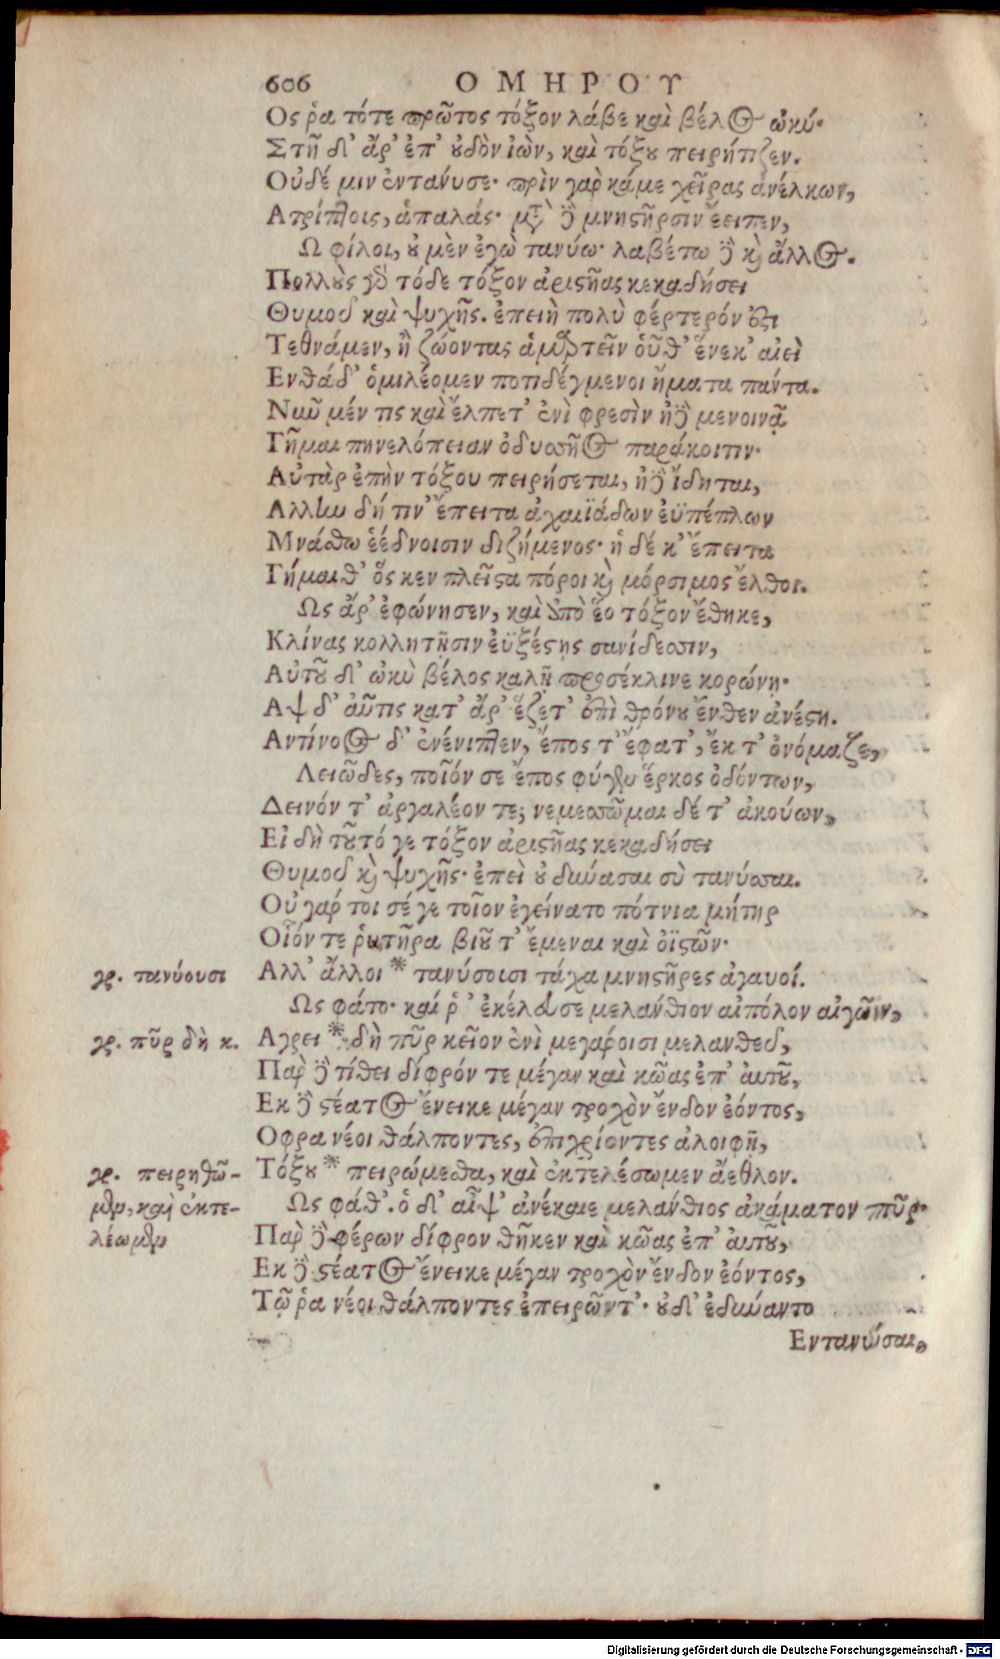 606 ΟΜΗΡΟΥ
Ος ῥα τότε πρῶτος τόξον λάβε καὶ βέλος ὠκύ·
Στῆ δ' ἄρ' ἐπ' οὐδὸν ἰὼν, καὶ τόξου πειρήτιζεν.
Οὐδέ μιν ἐντάνυσε· πρὶν γὰρ κάμε χεῖρας ἀνέλκων,
Ατρίπτοις, ἁπαλάς· μετὰ δὲ μνηστῆρσιν ἔειπεν,
Ω φίλοι, οὐ μὲν ἐγὼ τανύω· λαβέτω δὲ καὶ ἄλλος.
Πολλοὺς γὰρ τόδε τόξον ἀριστῆας κεκαδήσει
Θυμοῦ καὶ ψυχῆς. ἐπειὴ πολὺ φέρτερόν ἐστι
Τεθνάμεν, ἢ ζώοντας ἁμαρτεῖν οὗθ' ἕνεκ' αἰεὶ
Ενθάδ' ὁμιλέομεν ποτιδέγμενοι ἤματα πάντα.
Νῦν μέν τις καὶ ἔλπετ' ἐνὶ φρεσὶν ἠδὲ μενοινᾷ
Γῆμαι πηνελόπειαν ὀδυσσῆος παράκοιτιν·
Αὐτὰρ ἐπὴν τόξου πειρήσεται, ἠδὲ ἴδηται,
Αλλην δή τιν' ἔπειτα ἀχαιϊάδων ἐϋπέπλων
Μνάσθω ἑέδνοισιν διζήμενος· ἡ δέ κ' ἔπειτα
Γήμαιθ' ὅς κεν πλεῖστα πόροι καὶ μόρσιμος ἔλθοι.
Ως ἄρ' ἐφώνησεν, καὶ ἀπὸ ἕο τόξον ἔθηκε,
Κλίνας κολλητῇσιν ἐϋξέστης σανίδεσσιν,
Αὐτοῦ δ' ὠκὺ βέλος καλῇ προσέκλινε κορώνῃ·
Αψ δ' αὖτις κατ' ἄρ' ἕζετ' ἐπὶ θρόνου ἔνθεν ἀνέστη.
Αντίνοος δ' ἐνένιπτεν, ἔπος τ' ἔφατ', ἔκ τ' ὀνόμαζε,
Λειῶδες, ποῖόν σε ἔπος φύγεν ἕρκος ὀδόντων,
Δεινόν τ' ἀργαλέον τε; νεμεσσῶμαι δέ τ' ἀκούων,
Εἰ δὴ τοῦτό γε τόξον ἀριστῆας κεκαδήσει
Θυμοῦ καὶ ψυχῆς· ἐπεὶ οὐ δύνασαι σὺ τανύσσαι.
Οὐ γάρ τοι σέ γε τοῖον ἐγείνατο πότνια μήτηρ
Οἷόν τε ῥυτῆρα βιοῦ τ' ἔμεναι καὶ ὀϊστῶν·
γρ. τανύουσι Αλλ' ἄλλοι * τανύσοισι τάχα μνηστῆρες ἀγαυοί.
Ως φάτο· καί ῥ' ἐκέλευσε μελάνθιον αἰπόλον αἰγῶν,
γρ. πῦρ δὴ κ. Αγρει * δὴ πῦρ κεῖον ἐνὶ μεγάροισι μελανθεῦ,
Παρ δὲ τίθει δίφρόν τε μέγαν καὶ κῶας ἐπ' αὐτοῦ,
Εκ δὲ στέατος ἔνεικε μέγαν τροχὸν ἔνδον ἐόντος,
Οφρα νέοι θάλποντες, ἐπιχρίοντες ἀλοιφῇ,
γρ. πειρηθῶ- Τόξου * πειρώμεσθα, καὶ ἐκτελέσωμεν ἄεθλον.
μεν, καὶ ἐκτε- Ως φάθ'. ὁ δ' αἶψ' ἀνέκαιε μελάνθιος ἀκάματον πῦρ·
λέωμεν Παρ δὲ φέρων δίφρον θῆκεν καὶ κῶας ἐπ' αὐτοῦ,
Εκ δὲ στέατος ἔνεικε μέγαν τροχὸν ἔνδον ἐόντος,
Τῷ ῥα νέοι θάλποντες ἐπειρῶντ'· οὐδ' ἐδύναντο
Εντανύσαι,
Digitalisierung gefördert durch die Deutsche Forschungsgemeinschaft - DFG